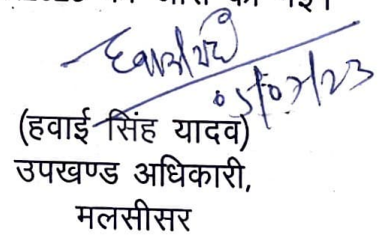 05/07/23
(हवाई सिंह यादव)
उपखण्ड अधिकारी,
मलसीसर